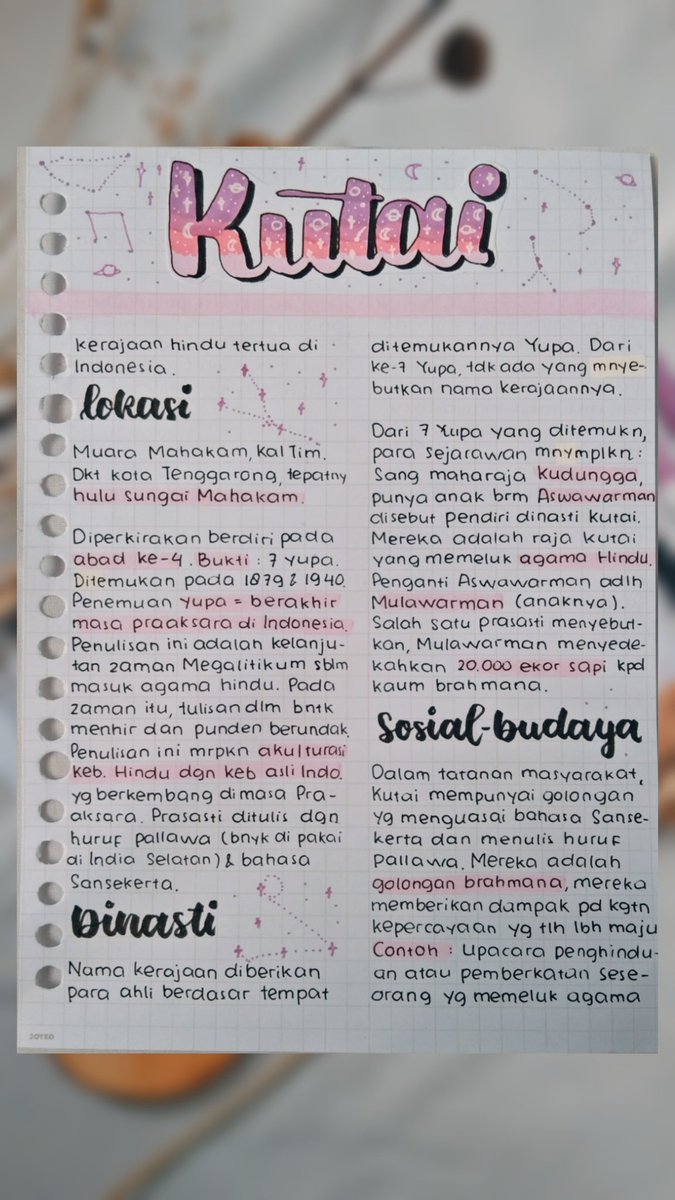 Kutai
kerajaan hindu tertua di
Indonesia.
lokasi
Muara Mahakam, Kal Tim.
Dkt kota Tenggarong, tepatny
hulu sungai Mahakam.
Diperkirakan berdiri pada
abad ke-4. Bukti : 7 yupa.
Ditemukan pada 1879 & 1940.
Penemuan yupa = berakhir
masa praaksara di Indonesia.
Penulisan ini adalah kelanju-
tan zaman Megalitikum sblm
masuk agama hindu. Pada
zaman itu, tulisan dlm bntk
menhir dan punden berundak.
Penulisan ini mrpkn akulturasi
keb. Hindu dgn keb asli Indo.
yg berkembang di masa Pra-
aksara. Prasasti ditulis dgn
huruf pallawa (bnyk di pakai
di India Selatan) & bahasa
Sansekerta.
Dinasti
Nama kerajaan diberikan
para ahli berdasar tempat
ditemukannya Yupa. Dari
ke-7 Yupa, tdk ada yang mnye-
butkan nama kerajaannya.
Dari 7 Yupa yang ditemukn,
para sejarawan mnymplkn :
Sang maharaja Kudungga,
punya anak brm Aswawarman
disebut pendiri dinasti kutai.
Mereka adalah raja kutai
yang memeluk agama Hindu.
Penganti Aswawarman adlh
Mulawarman (anaknya).
Salah satu prasasti menyebut-
kan, Mulawarman menyede-
kahkan 20.000 ekor sapi kpd
kaum brahmana.
Sosial-budaya
Dalam tatanan masyarakat,
Kutai mempunyai golongan
yg menguasai bahasa Sanse-
kerta dan menulis huruf
Pallawa. Mereka adalah
golongan brahmana, mereka
memberikan dampak pd kgtn
kepercayaan yg tlh lbh maju
Contoh : Upacara penghindu-
an atau pemberkatan sese-
orang yg memeluk agama
JOYKO